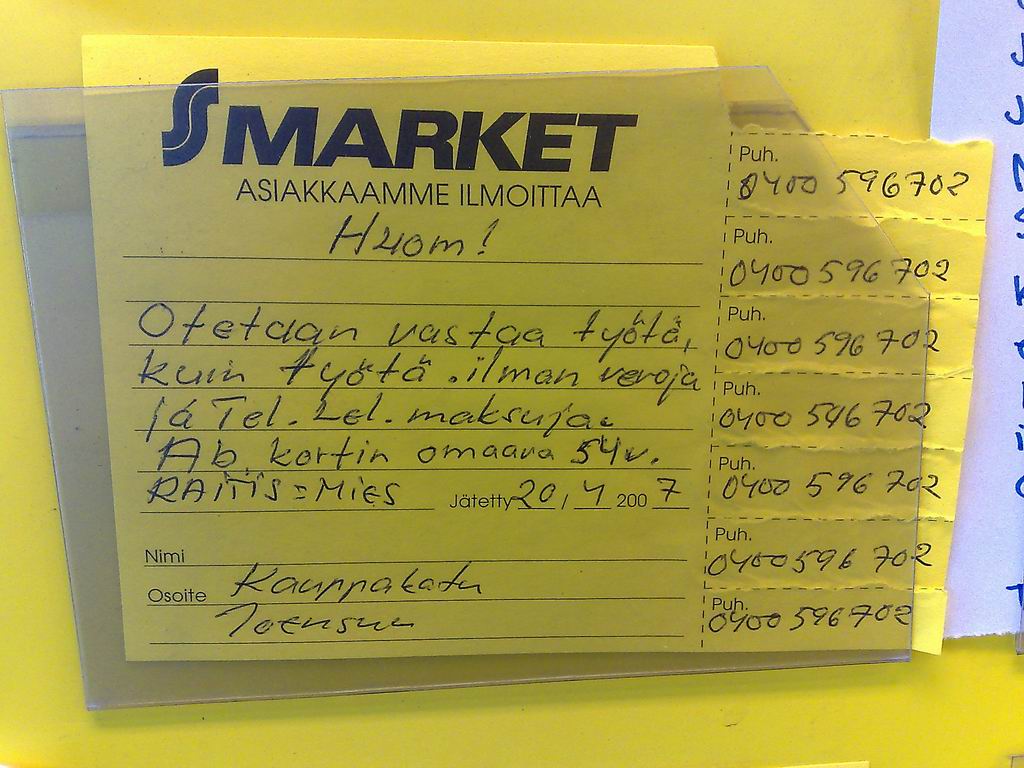 S MARKET
ASIAKKAAMME ILMOITTAA
Huom!
Otetaan vastaa työtä,
kuin työtä .ilman veroja
ja Tel. Lel. maksuja.
Ab. kortin omaava 54v.
RAITIS = MIES Jätetty 20 / 4 200 7
Nimi
Osoite Kauppakatu
Joensuu
Puh.
0400 596702
Puh.
0400 596 702
Puh.
0400 596 702
Puh.
0400 596 702
Puh.
0400 596 702
Puh.
0400 596 702
Puh.
0400 596702